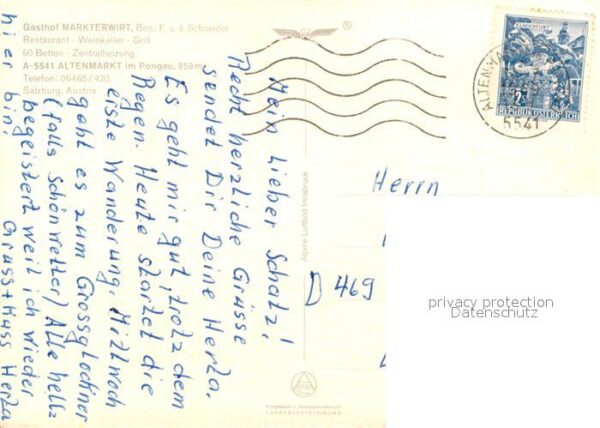 Gasthof MARKTERWIRT, Bes.: F. u. J. Schneider
Restaurant - Weinkeller - Grill
60 Betten - Zentralheizung
A-5541 ALTENMARKT im Pongau, 850m
Telefon: 06465/420,
Salzburg, Austria
Mein lieber Schatz!
Recht herzliche Grüsse
sendet Dir Deine Herta.
Es geht mir gut, trotz dem
Regen. Heute startet die
erste Wanderung. Mittwoch
geht es zum Grossglockner
(falls Schönwetter) Alle hell=
begeistert weil ich wieder
hier bin!
Gruss+Kuss Herta
Alpine Luftbild Innsbruck
KLAGENFURT
REPUBLIK ÖSTERREICH
ALTENMA
5541
Herrn
D 469
privacy protection
Datenschutz